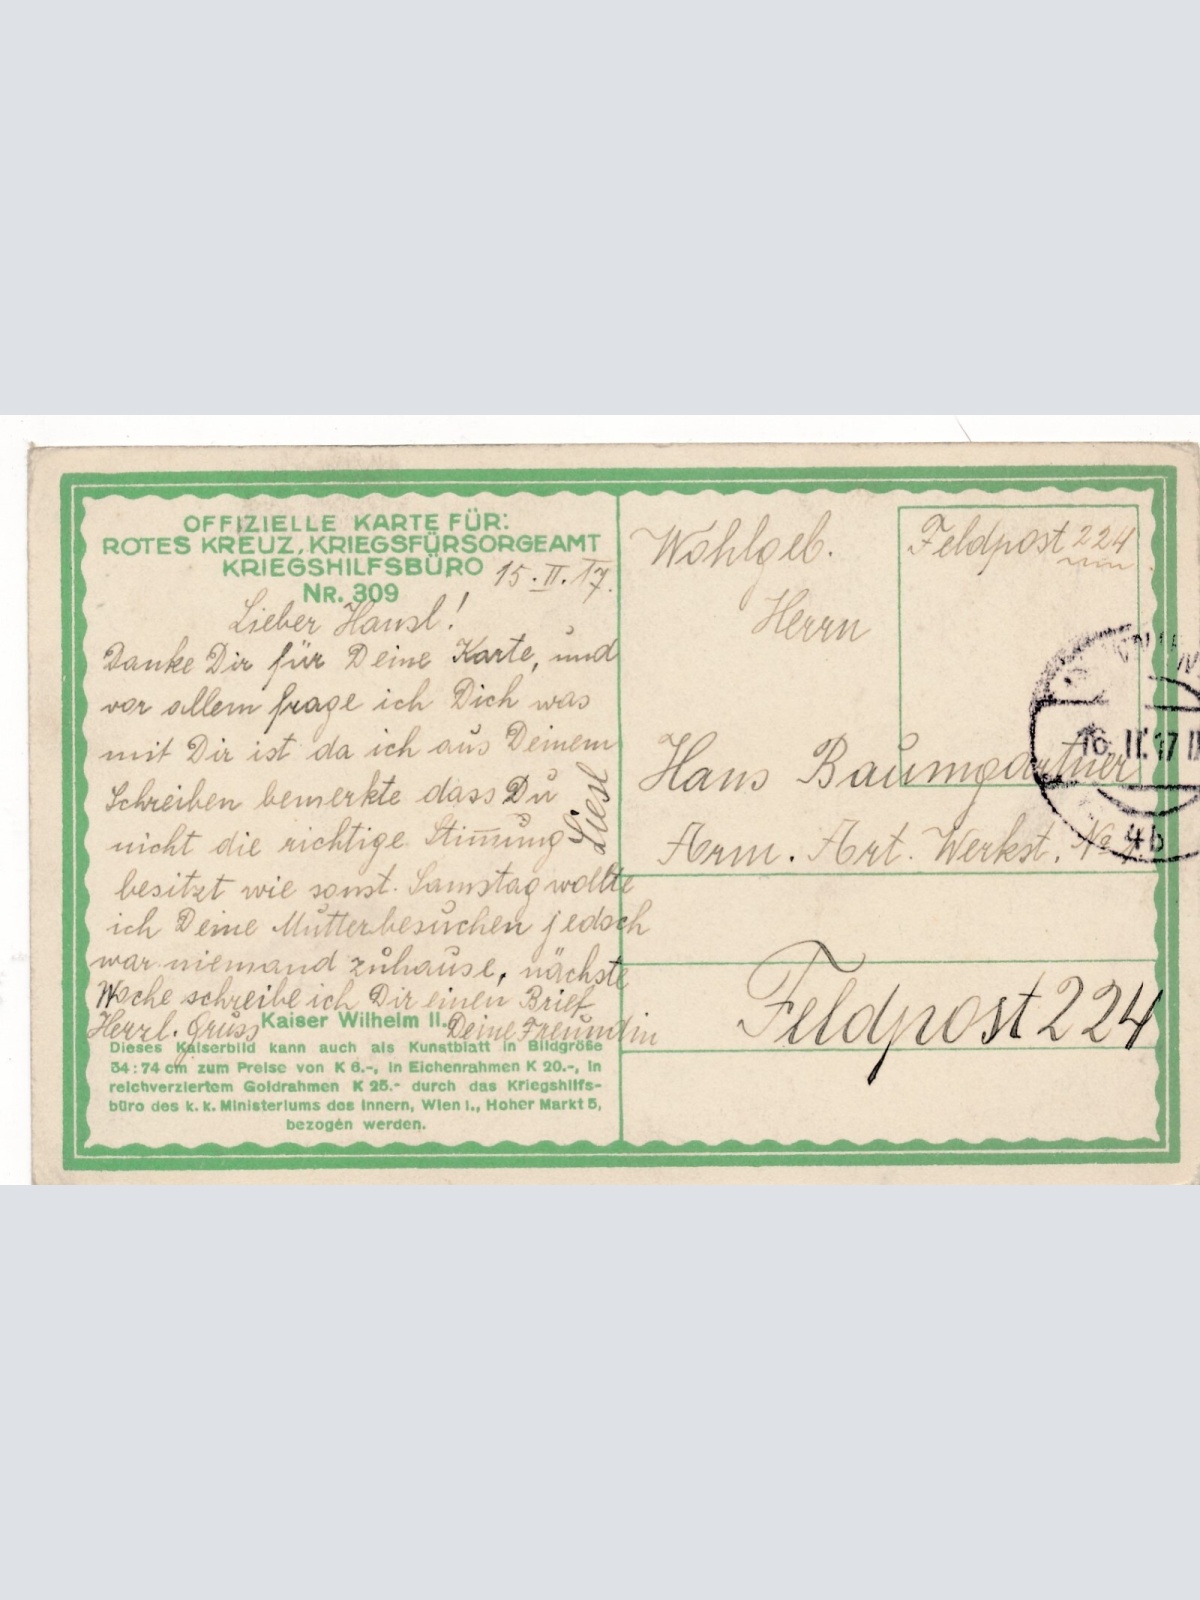 OFFIZIELLE KARTE FÜR:
ROTES KREUZ, KRIEGSFÜRSORGEAMT
KRIEGSHILFSBÜRO
NR. 309
15. II. 17.
Lieber Hansl!
Danke Dir für Deine Karte, und
vor allem frage ich Dich was
mit Dir ist da ich aus Deinem
Schreiben bemerkte dass Du
nicht die richtige Stim̅ung
besitzt wie sonst. Samstag wollte
ich Deine Mutter besuchen jedoch
war niemand zuhause, nächste
Woche schreibe ich Dir einen Brief
Herzl. Gruss Deine Freundin
Liesl
Kaiser Wilhelm II.
Dieses Kaiserbild kann auch als Kunstblatt in Bildgröße
54:74 cm zum Preise von K 6.-, in Eichenrahmen K 20.-, in
reichverziertem Goldrahmen K 25.- durch das Kriegshilfs-
büro des k. k. Ministeriums des Innern, Wien I., Hoher Markt 5,
bezogen werden.
Feldpost 224
Wohlgeb.
Herrn
Hans Baumgartner
Arm. Art. Werkst. No
Feldpost 224
16. II. 17
4b